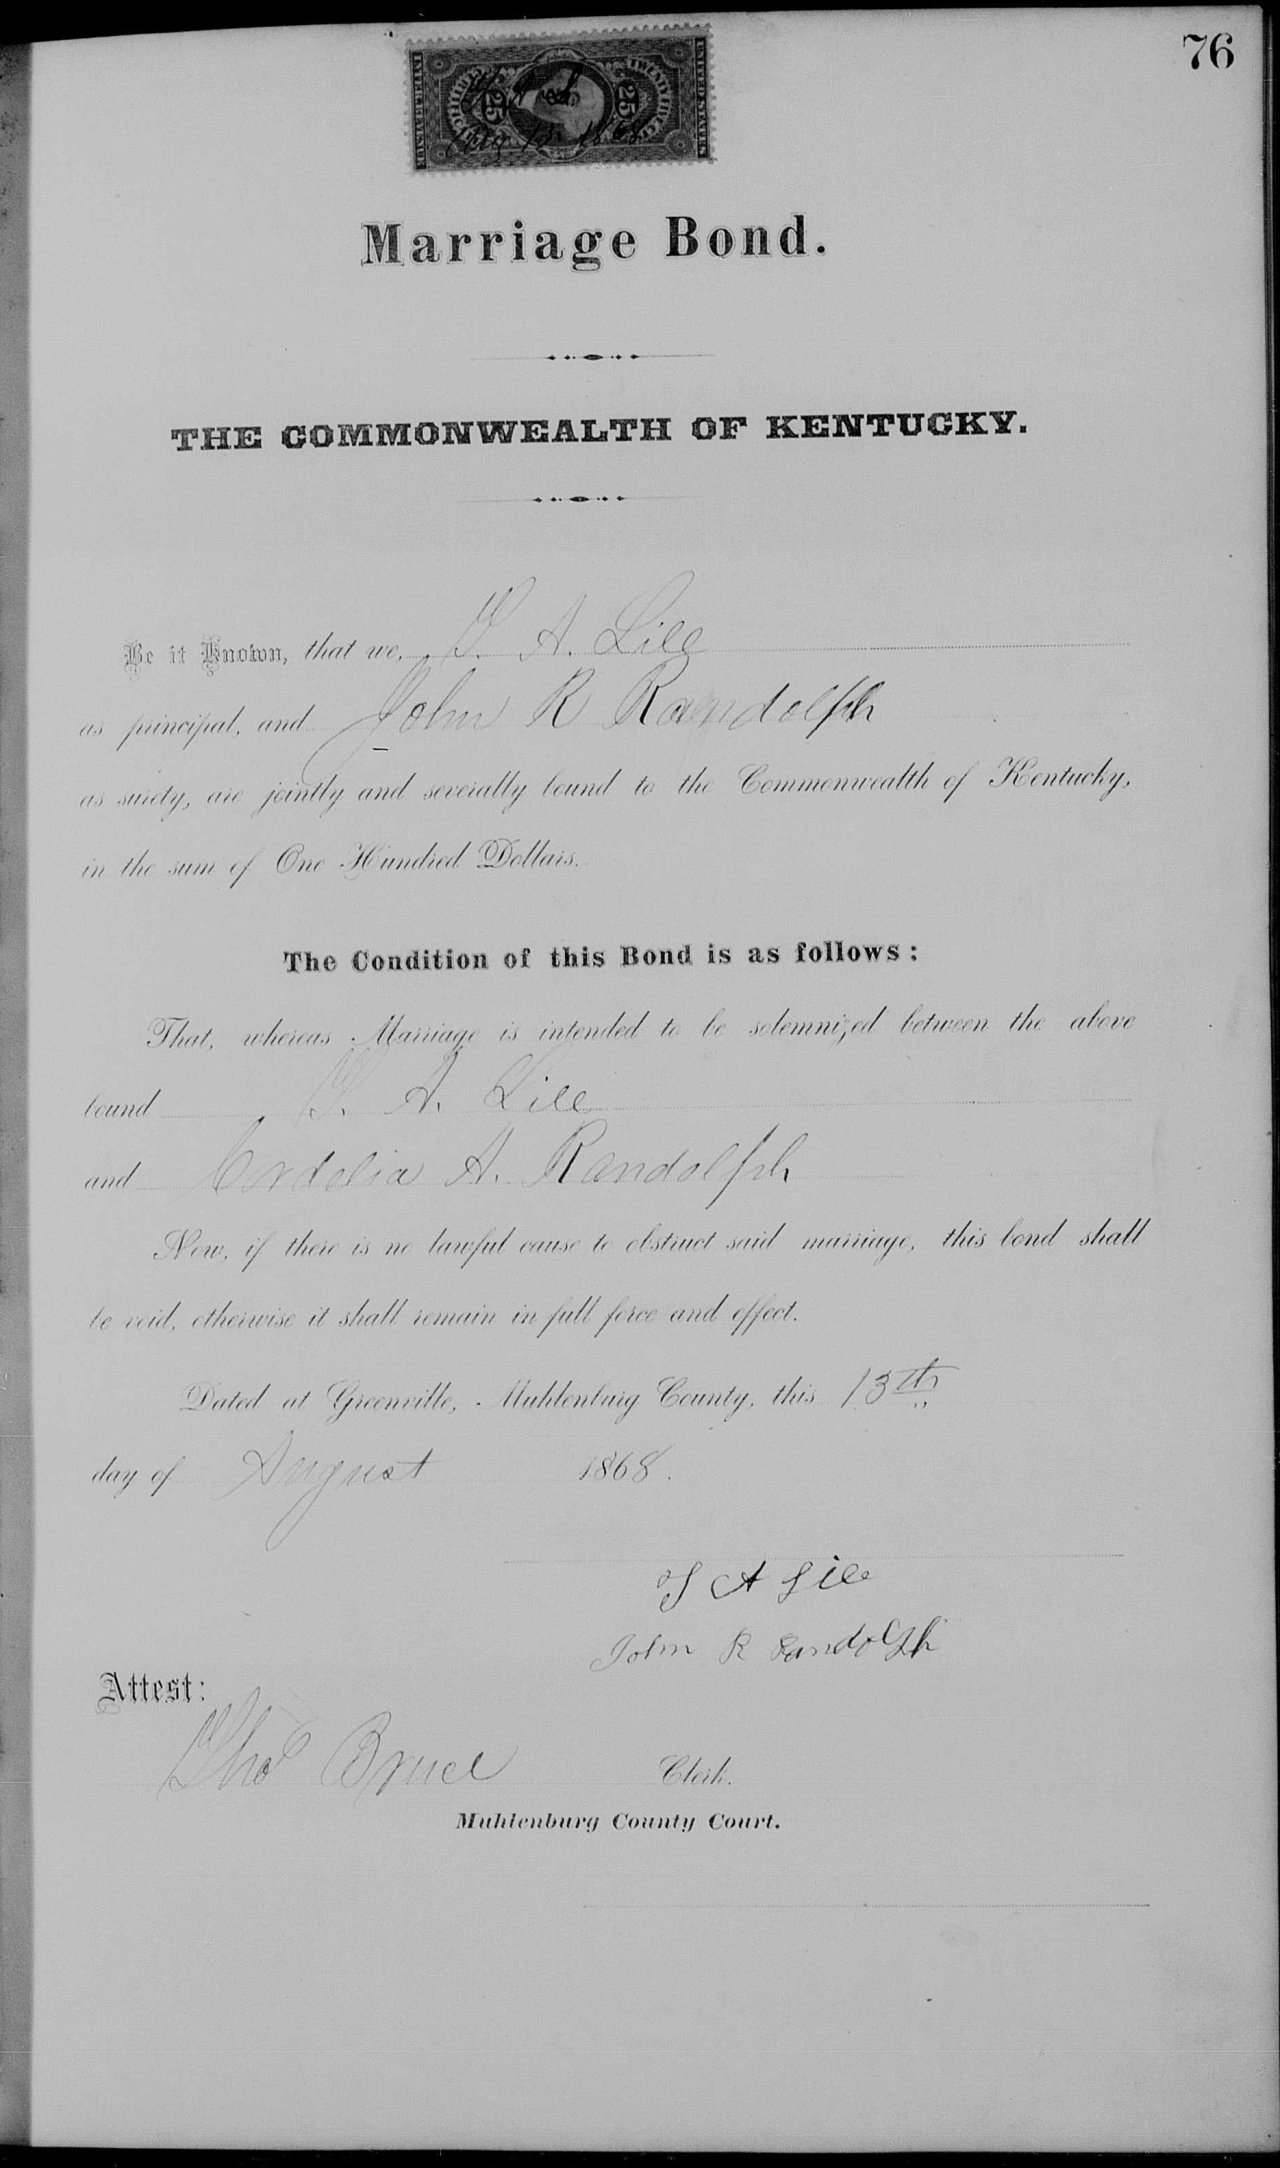 76
UNITED STATES
TWENTY FIVE CTS.
25
25
INTER. REVENUE
Aug 13 1868
Marriage Bond.
THE COMMONWEALTH OF KENTUCKY.
Be it Known, that we, T. A. Lile
as principal, and John R Randolph
as surety, are jointly and severally bound to the Commonwealth of Kentucky,
in the sum of One Hundred Dollars.
The Condition of this Bond is as follows:
That, whereas Marriage is intended to be solemnized between the above
bound T. A. Lile
and Cordelia A. Randolph
Now, if there is no lawful cause to obstruct said marriage, this bond shall
be void, otherwise it shall remain in full force and effect.
Dated at Greenville, Muhlenburg County, this 13th
day of August 1868.
T A Lile
John R Randolph
Attest:
Thos Bruce Clerk.
Muhlenburg County Court.